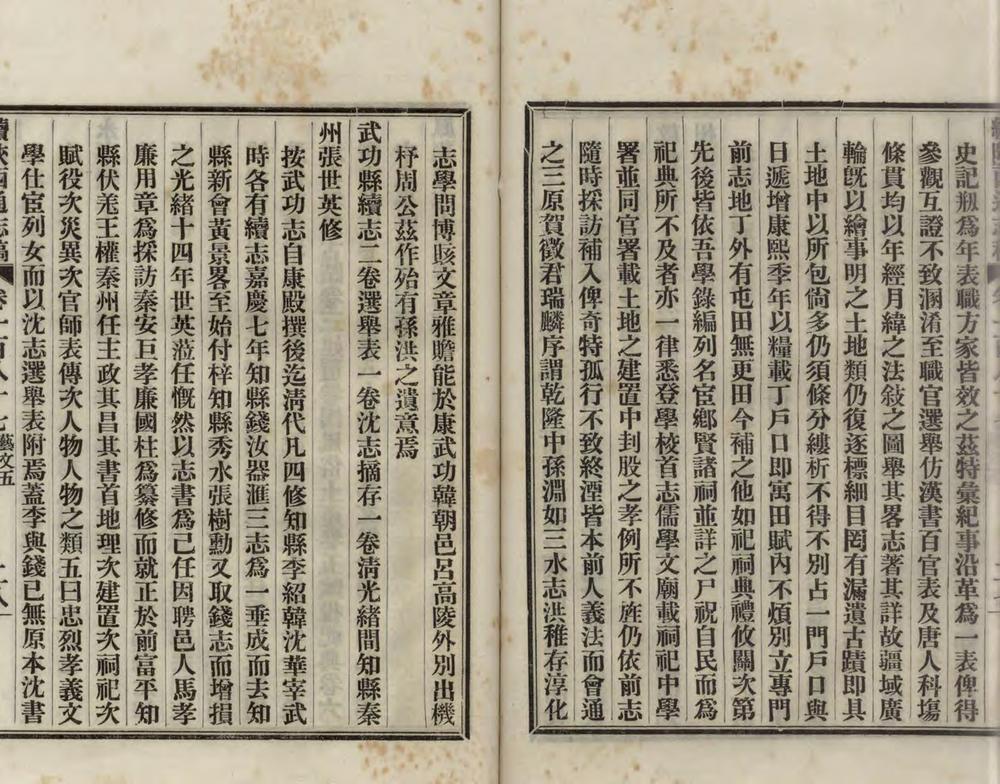 史記瓶爲年表職方家皆效之茲特彙紀事沿革爲一表俾得
參觀互證不致溷淆至職官選舉仿漢書百官表及唐人科塲
條貫均以年經月緯之法敍之圖舉其畧志著其詳故疆域廣
輪旣以繪事明之土地類仍復逐標細目罔有漏遺古蹟即具
土地中以所包尙多仍須條分縷析不得不別占一門戸口與
日遞增康熙季年以糧載丁戸口即寓田賦內不煩別立專門
前志地丁外有屯田無更田今補之他如祀祠典禮攸關次第
先後皆依吾學錄編列名宦鄕賢諸祠並詳之尸祝自民而爲
祀典所不及者亦一律悉登學校首志儒學文廟載祠祀中學
署並同官署載土地之建置中刲股之孝例所不旌仍依前志
隨時採訪補入俾奇特孤行不致終湮皆本前人義法而會通
之三原賀徵君瑞麟序謂乾隆中孫淵如三水志洪稚存淳化
志學問博賅文章雅贍能於康武功韓朝邑呂高陵外別出機
杼周公茲作殆有孫洪之遺意焉
武功縣續志二卷選舉表一卷沈志摘存一卷淸光緒間知縣秦
州張世英修
按武功志自康殿撰後迄淸代凡四修知縣李紹韓沈華宰武
時各有續志嘉慶七年知縣錢汝器滙三志爲一垂成而去知
縣新會黃景畧至始付梓知縣秀水張樹勳又取錢志而增損
之光緒十四年世英蒞任慨然以志書爲己任因聘邑人馬孝
廉用章爲採訪秦安巨孝廉國柱爲纂修而就正於前富平知
縣伏羌王權秦州任主政其昌其書首地理次建置次祠祀次
賦役次災異次官師表傳次人物人物之類五曰忠烈孝義文
學仕宦列女而以沈志選舉表附焉蓋李與錢已無原本沈書
續陝西通志稿 卷一百八十七藝文五